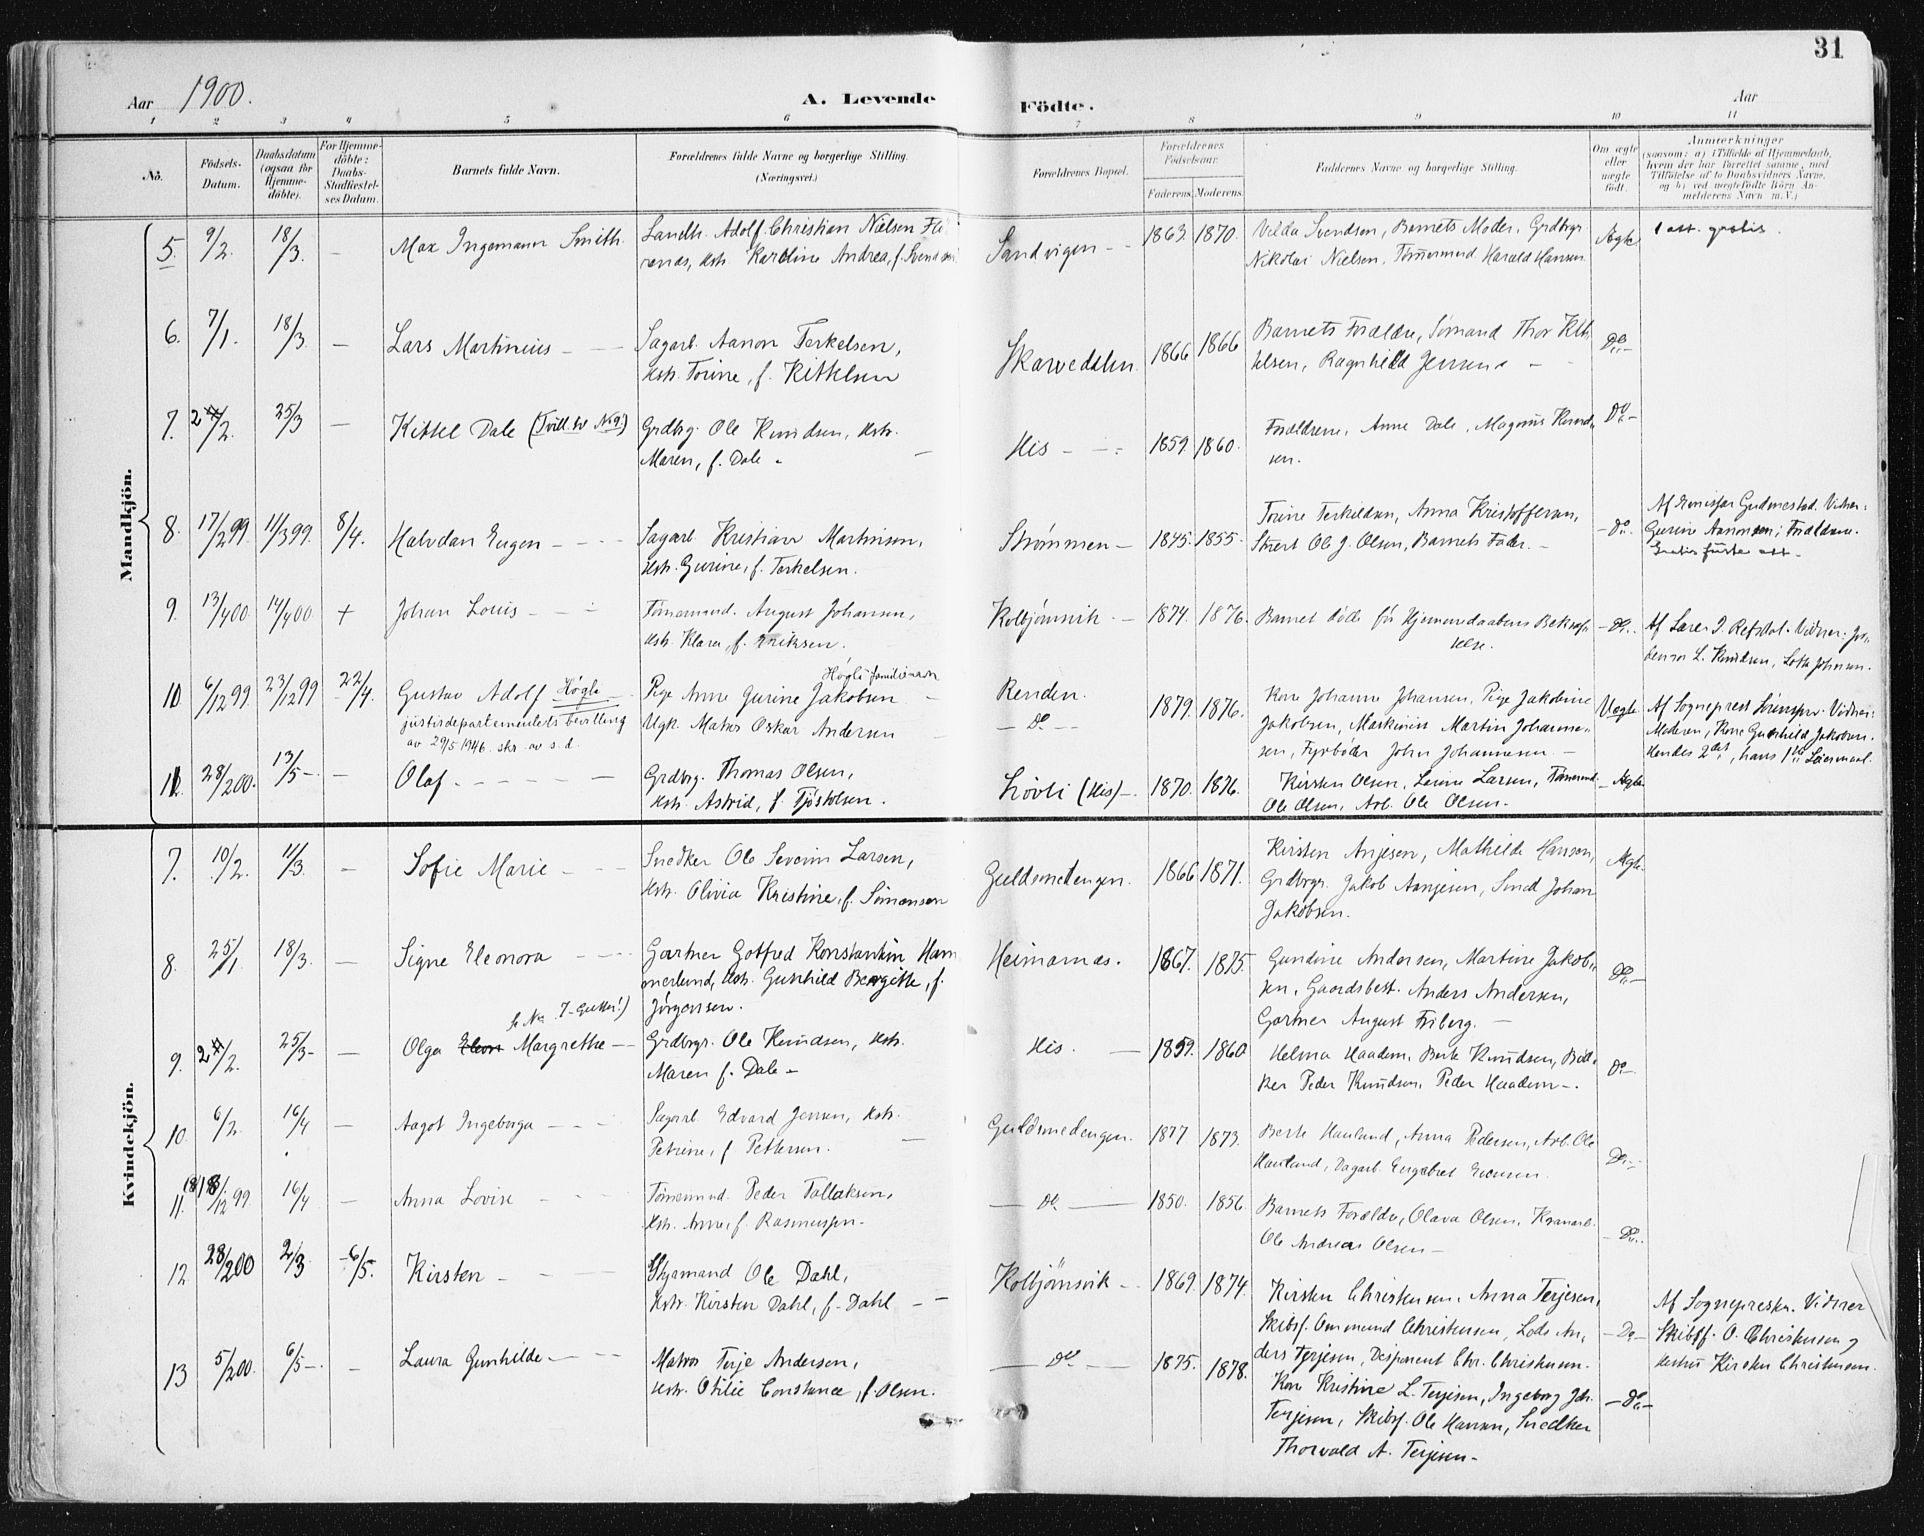 31
Aar 1900. A. Levende Födte. Aar
1 2 3 4 5 6 7 8 9 10 11
No. Födsels-Datum. Daabsdatum (ogsaa for Hjemme-döbte). For Hjemme-döbte: Daabs-Stadfæstel-ses Datum. Barnets fulde Navn. Forældrenes fulde Navne og borgerlige Stilling. (Næringsvei.) Forældrenes Bopæl. Forældrenes Födselsaar. Faderens. Moderens. Faddernes Navne og borgerlige Stilling. Om ægte eller uægte födt. Anmærkninger (saasom: a) i Tilfælde af Hjemmedaab, hvem der har forrettet samme, med Tilföielse af to Daabsvidners Navne, og b) ved uægtefödte Börn An-melderens Navn m. V.)
Mandkjön.
5. 9/2. 18/3. – Max Ingemann Smith Landh. Adolf Christian Nielsen
Hstr. Karoline Andrea, f. Svendsen Sandvigen – 1863. 1870. Vilda Svendsen, Barnets Moder, Grdbrgr.
Nikolai Nielsen, Tømermd. Harald Hansen Ægte 1 att. gratis.
6. 7/1. 18/3. – Lars Martinius – Sagarb. Aanon Terkelsen,
Hstr. Torine, f. Kittelsen Skarvedalen 1866 1866 Barnets Forældre, Sømand Thor Kit-
telsen, Ragnhild Jensen – Do –
7. 24/2. 25/3 – Kittel Dale (Tvill. til No 9.) Grdbrg. Ole Knudsen, Hstr.
Maren, f. Dale – His – 1859. 1860. Forældrene, Anne Dale, Magnus Knud-
sen. Do –
8. 17/2 99 11/3 99. 8/4. Halvdan Eugen – Sagarb. Kristian Martinsen,
Hstr. Gurine, f. Terkelsen. Strømmen – 1845. 1855. Torine Terkildsen, Anna Kristoffersen,
Ole J. Olsen, Barnets Fader. – Do. Gudmestad. Vidner:
Gurine Aanonsen, Forældrene.
9. 13/4 00. 14/4 00. + Johan Louis – Tømermd. August Johansen,
Hstr. Klara, f. Eriksen. Kolbjørnsvik. – 1874. 1876. Barnet døde før Hjemmedaabens Bekræf-
telse. – Do. Af Lærer J. Refsdal. Vidner: Jo-
L. Knudsen, Lotte Johnsen.
10 6/12 99 23/12 99 22/4. Gustav Adolf Høgli Høgli familienavn
justisdepartementets bevilling
av 29/5 1946. skr. av s.d. Pige Anne Gurine Jakobsen
Ugk. Matros Oskar Andersen Renden.
– Do – 1879. 1876. Kone Johanne Johansen, Pige Jakobine
Jakobsen, Maskinist Martin Johanne-
sen, Fyrbøder John Johannesen – Uægte Af Sogneprest Vidner:
Moderen, Kone Gunhild Jakobsen.
Hendes 2det, hans 1ste Leiermaal.
11. 28/2 00. 13/5 – – Olaf – Grdbrg. Thomas Olsen,
Hstr. Astrid, f. Tjøstolsen. Løvli (His) – 1870. 1876. Kirsten Olsen, Lovine Larsen, Tømermd.
Ole Olsen, Arb. Ole Olsen. – Ægte
Kvindekjön.
7. 10/2. 11/3. – Sofie Marie – Snedker Ole Severin Larsen,
Hstr. Olivia Kristine, f. Simonsen Guldsmedengen. 1866 1871. Kirsten Anjesen, Mathilde Hansen,
Grdbrgr. Jakob Aanjesen, Smed Johan
Jakobsen. Ægte
8. 25/1. 18/3. – Signe Eleonora – Gartner Gotfred Konstantin Ham-
merlund, Hstr. Gunhild Bergitte, f.
Jørgensen. Heimarnes. 1867. 1875. Gundine Andersen, Martine Jakob-
sen, Gaardsbest. Anders Andersen,
Gartner August Friberg. – Do –
9. 24/2. 25/3 – – Olga Margrethe – (se No 7 – gutter!) Grdbrgr. Ole Knudsen, Hstr.
Maren f. Dale – His. – 1859. 1860 Helma Haadem, Berte Knudsen, Bød-
ker Peder Knudsen, Peder Haadem –. Do –
10. 6/2. 16/4 – Aagot Ingeborga – Sagarb. Edvard Jensen, Hstr.
Petrine, f. Pettersen. Guldsmedengen. 1877 1873. Berte Hauland, Anna Pedersen, Arb. Ole
Hauland, Dagarb. Engebret Evensen. Do –
11. 18/12 99. 16/4 – Anna Lovise – Tømermd. Peder Tallaksen,
Hstr. Anne, f. Rasmussen. – Do – 1850. 1856. Barnets Forældre, Olava Olsen, Kranarb.
Ole Andreas Olsen – – Do.
12 28/2 00 2/3. 6/5. Kirsten – Styrmand Ole Dahl,
Hstr. Kirsten Dahl, f. Dahl – Kolbjørnsvik – 1869. 1874. Kirsten Christensen, Anna Terjesen,
Skibsf. Ommund Christensen, Lods An-
ders Terjesen, Disponent Chr. Christensen. – Do – Af Sognepresten. Vidner
Skibsf. O. Christensen og
Hustru Kirsten Christensen.
13 5/2 00. 6/5 –. – Laura Gunhilde – Matros Terje Andersen,
Hstr. Otilie Constance, f. Olsen. – Do – 1875. 1878. Kone Kristine L. Terjesen, Ingeborg Joh.
Terjesen, Skibsf. Ole Hansen, Snedker
Thorvald A. Terjesen – – Do –